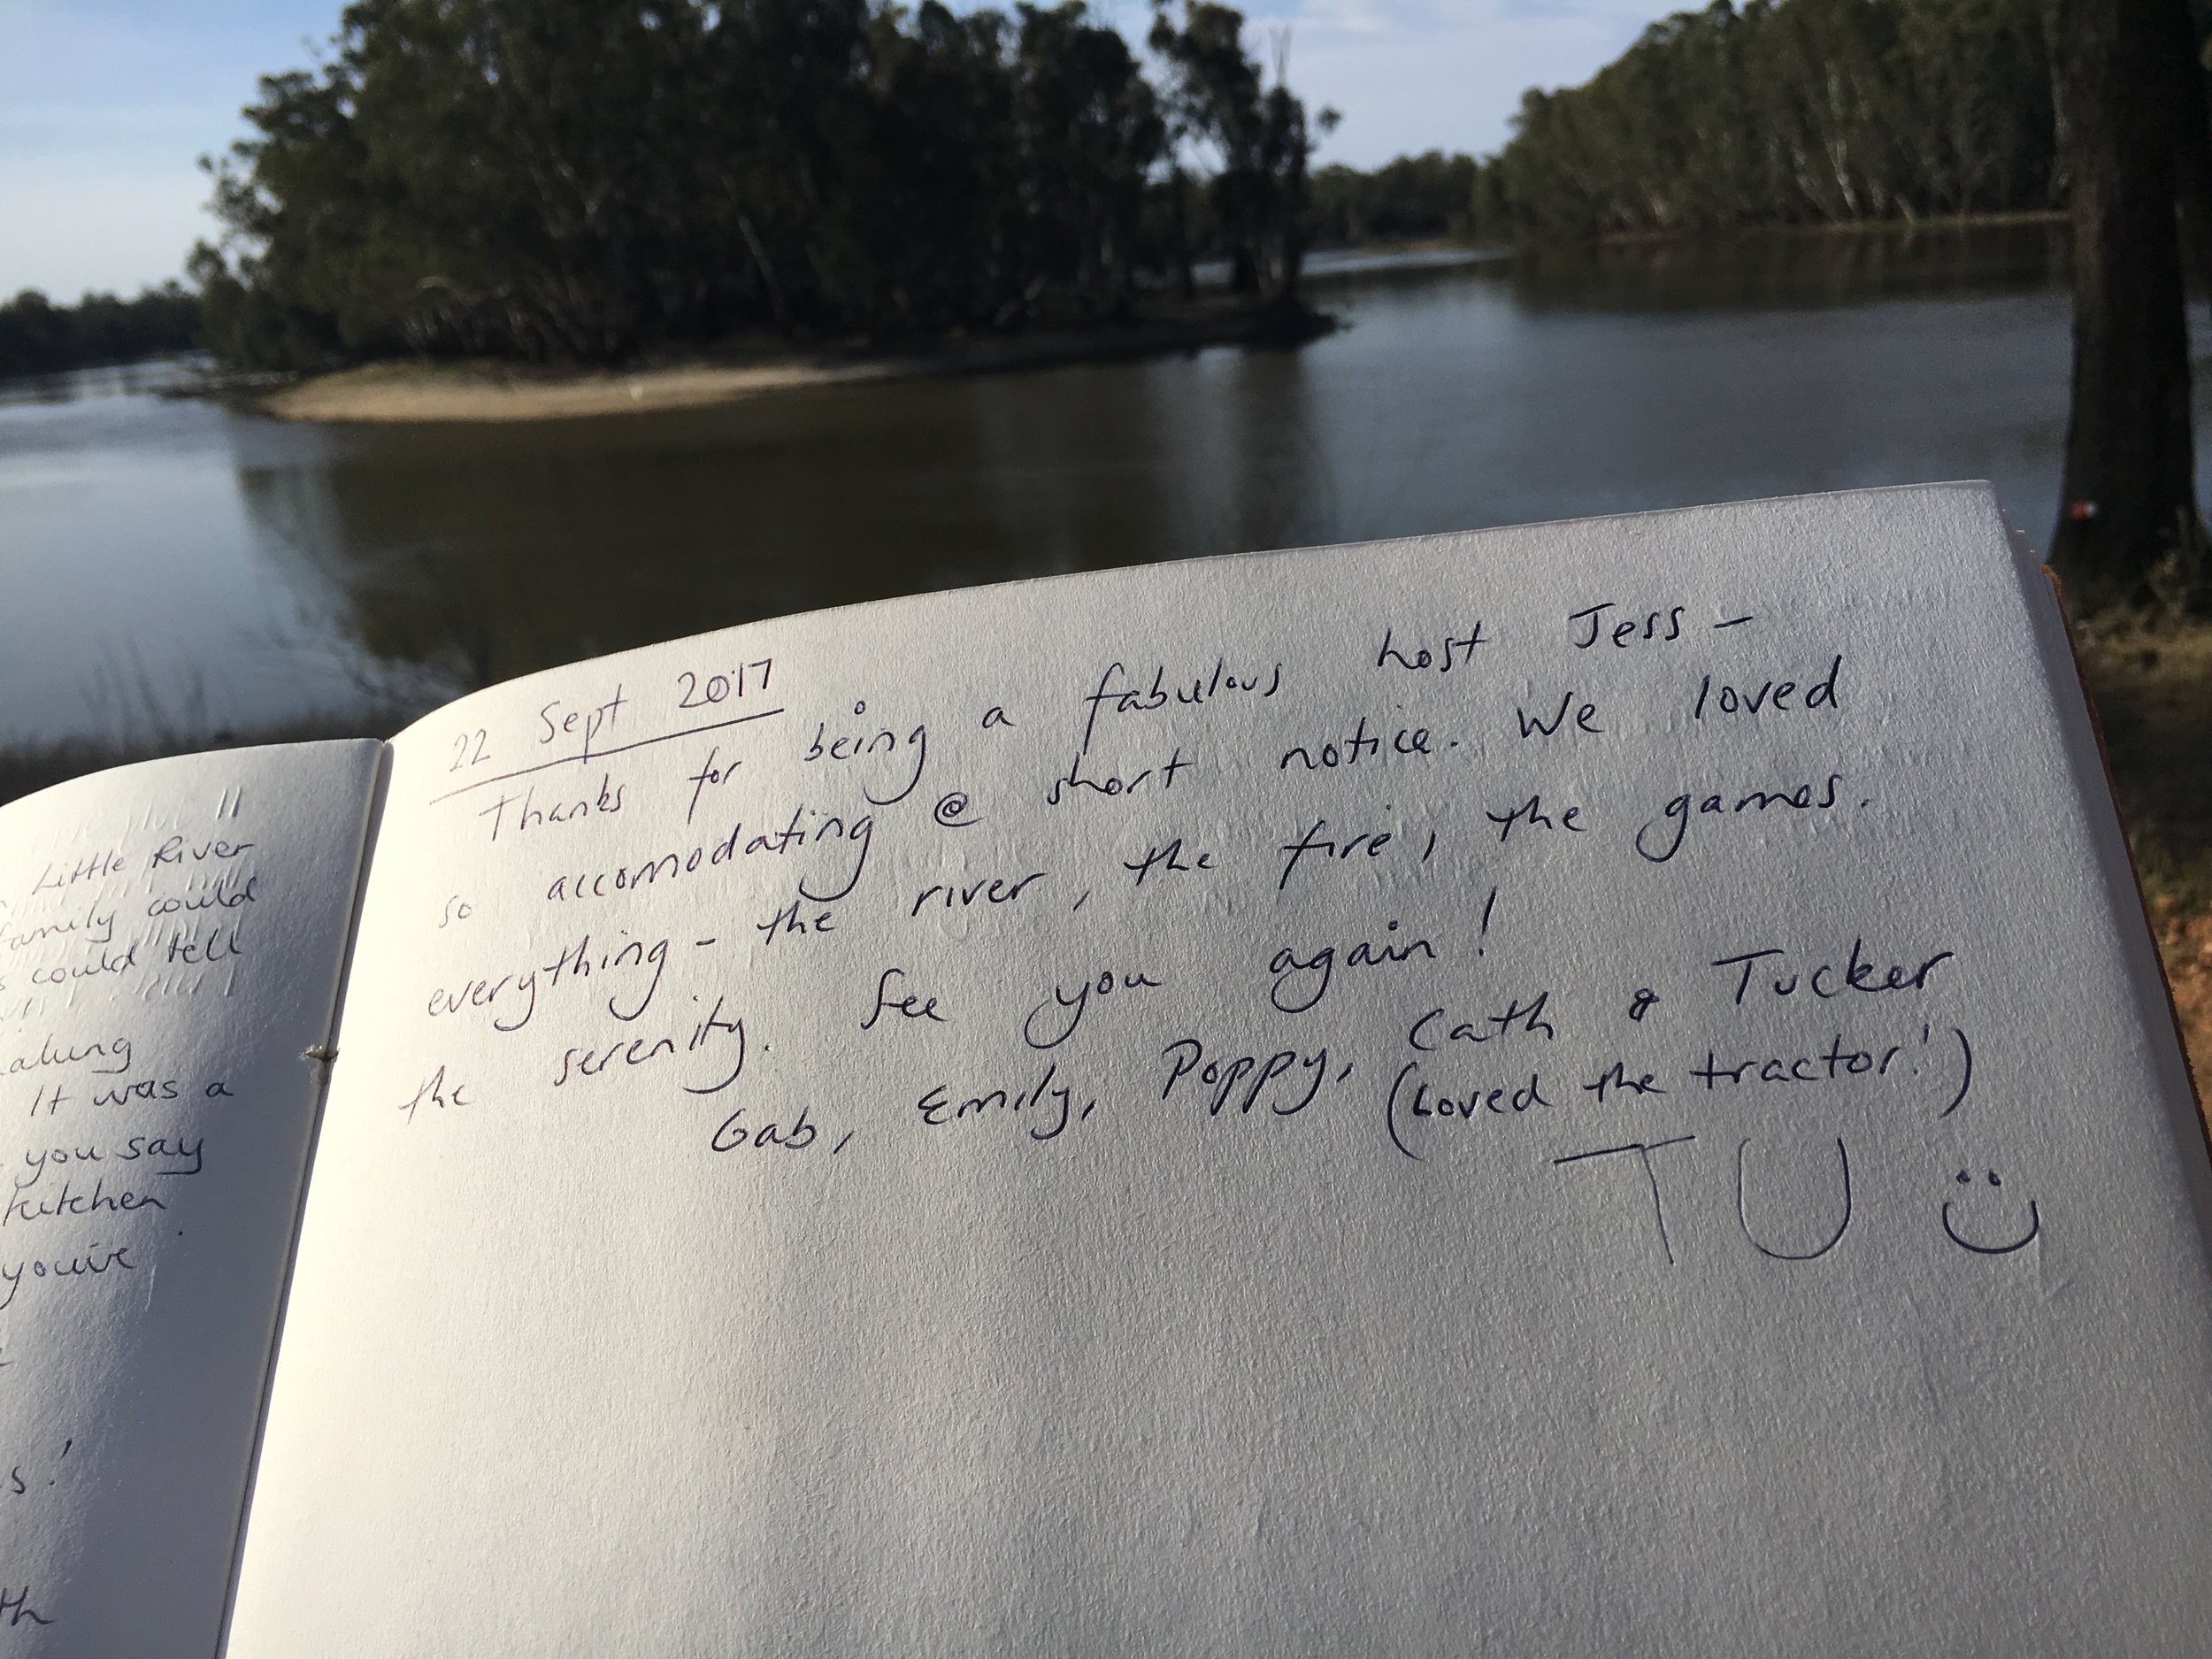 Little River
family could
could tell
It was a
you say
kitchen
you're
22 Sept 2017
Thanks for being a fabulous host Jess –
so accomodating @ short notice. We loved
everything – the river, the fire, the games.
the serenity. See you again!
Gab, Emily, Poppy, Cath & Tucker
(Loved the tractor!)
TU